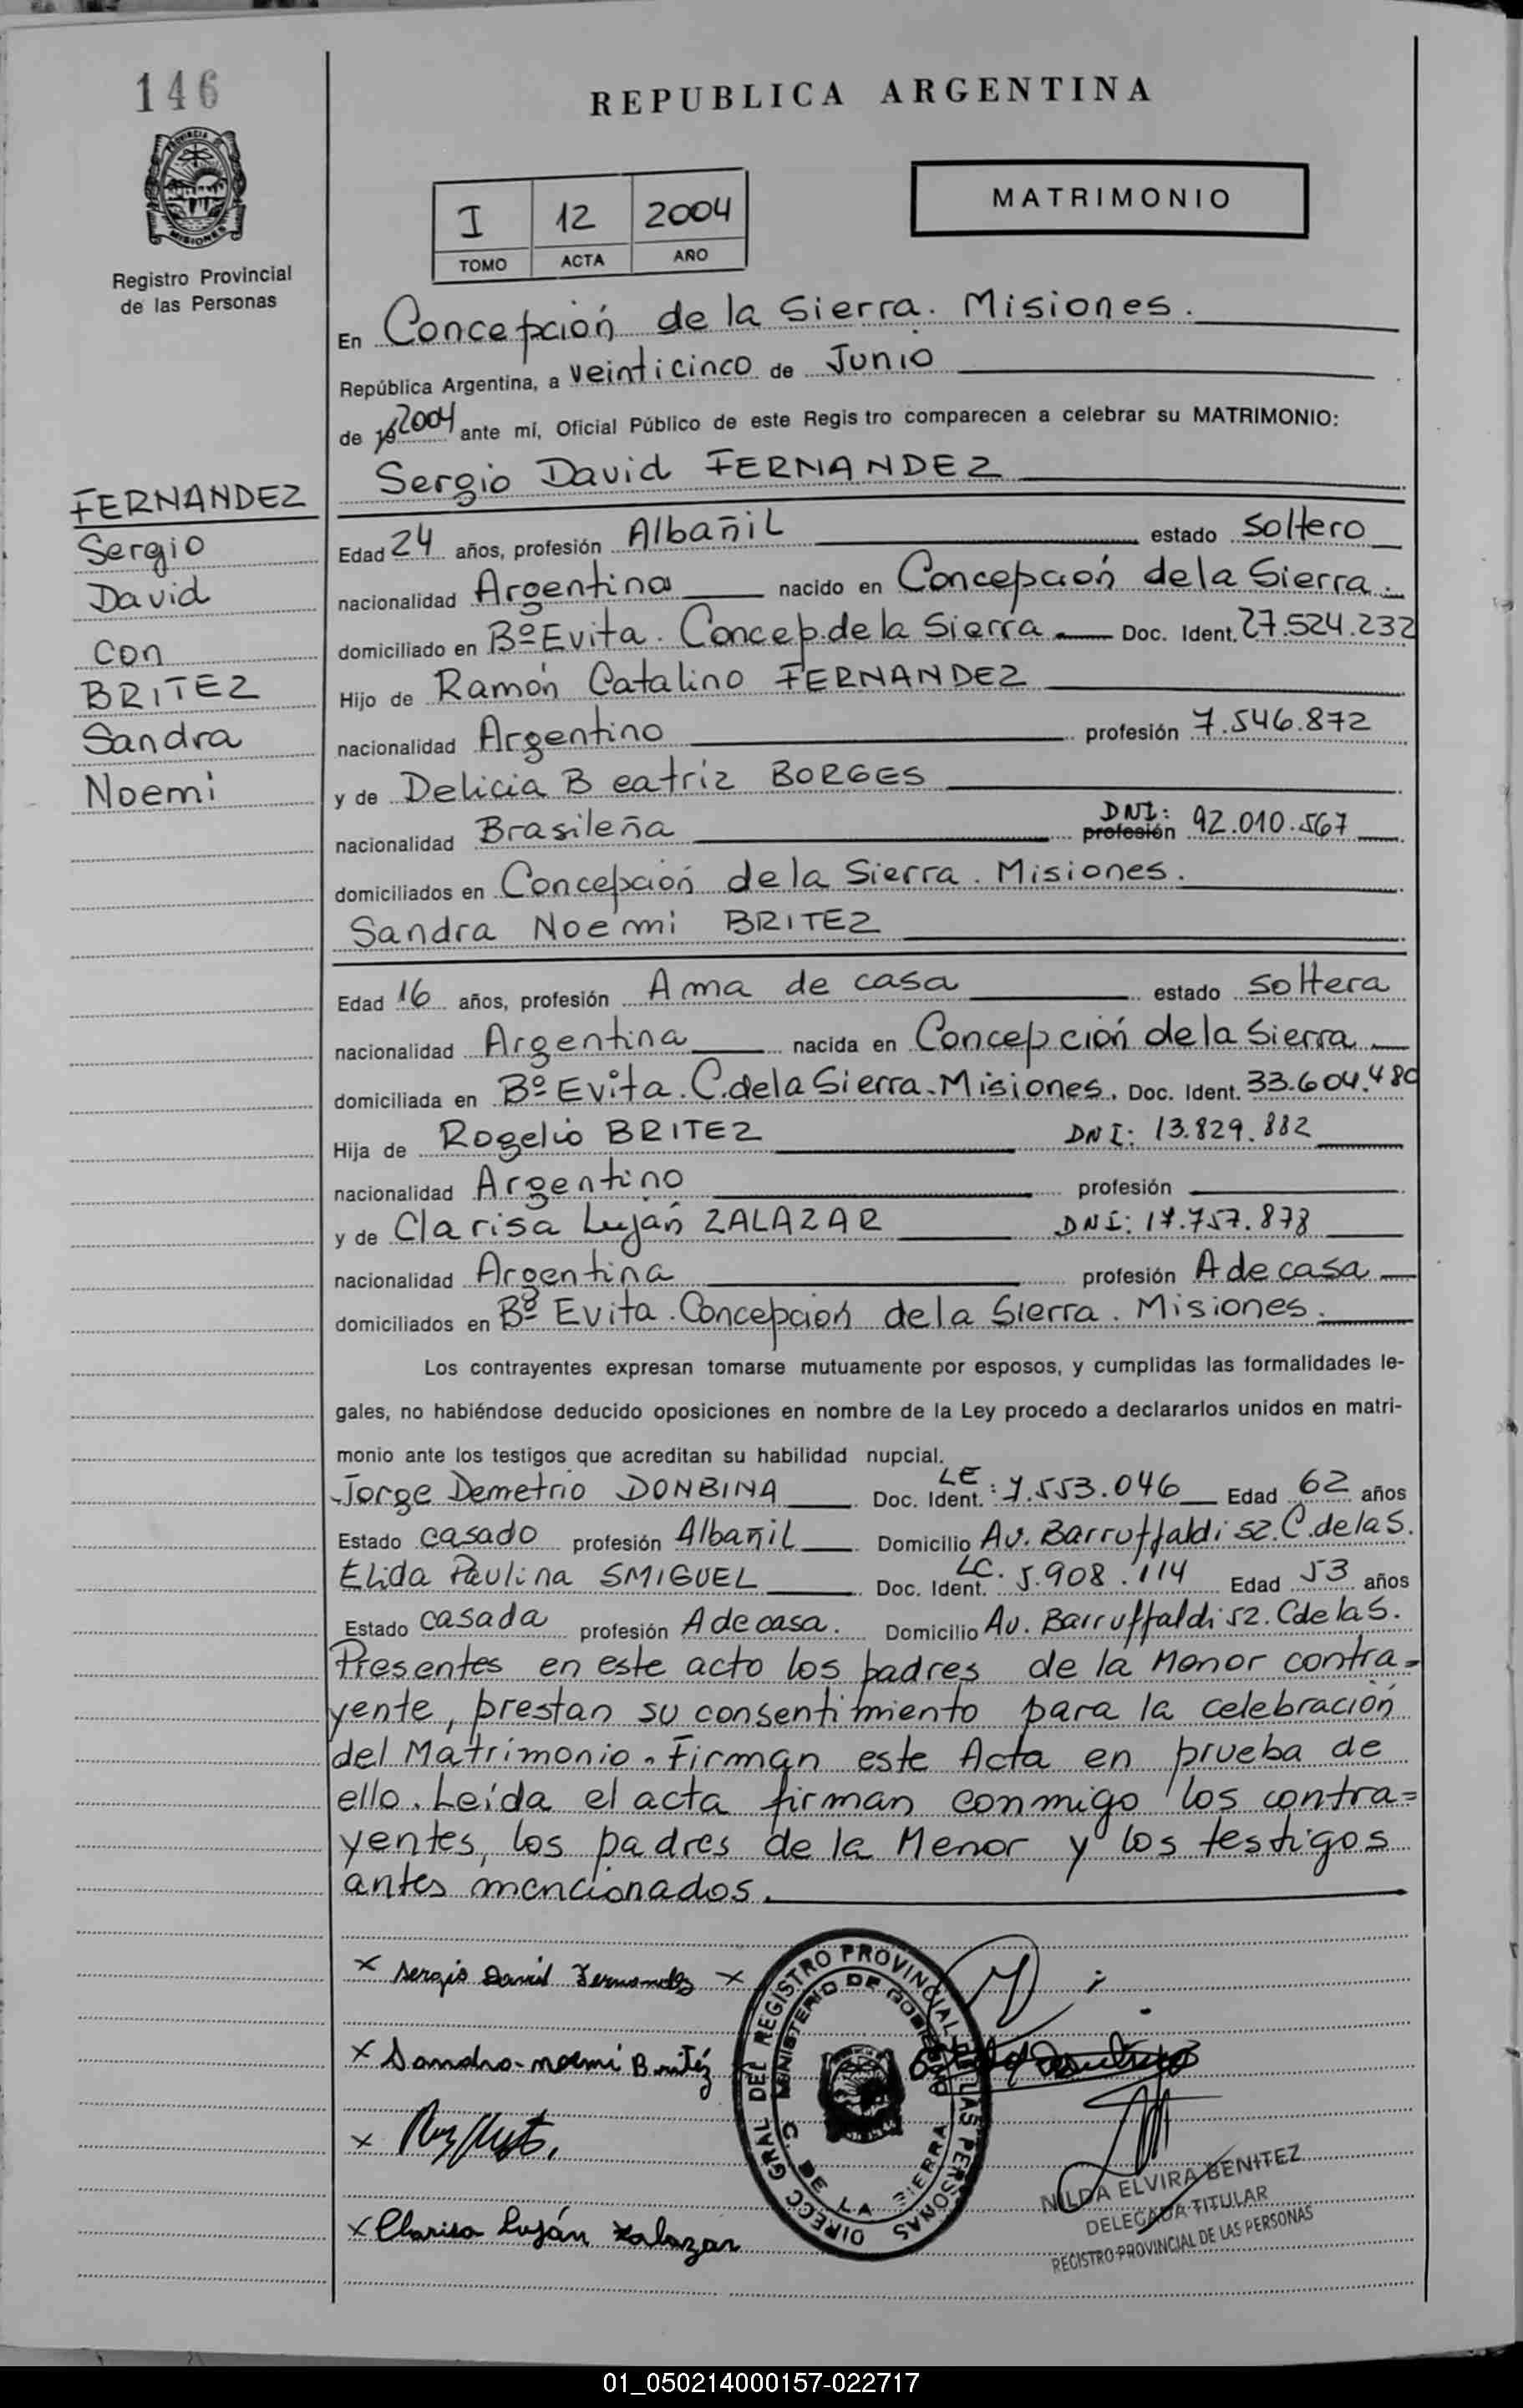 146
REPUBLICA ARGENTINA
PROVINCIA
MISIONES
Registro Provincial
de las Personas
I 12 2004
TOMO ACTA AÑO
MATRIMONIO
En Concepción de la Sierra. Misiones.
República Argentina, a veinticinco de Junio
de 19 2004 ante mí, Oficial Público de este Regis tro comparecen a celebrar su MATRIMONIO:
Sergio David FERNANDEZ
FERNANDEZ
Sergio
David
con
BRITEZ
Sandra
Noemi
Edad 24 años, profesión Albañil estado soltero
nacionalidad Argentina nacido en Concepción de la Sierra.
domiciliado en Bº Evita. Concep. de la Sierra Doc. Ident. 27.524.232
Hijo de Ramón Catalino FERNANDEZ
nacionalidad Argentino profesión 7.546.872
y de Delicia B eatriz BORGES
nacionalidad Brasileña DNI: profesión 92.010.567
domiciliados en Concepción de la Sierra. Misiones.
Sandra Noemi BRITEZ
Edad 16 años, profesión Ama de casa estado soltera
nacionalidad Argentina nacida en Concepción de la Sierra
domiciliada en Bº Evita. C. de la Sierra. Misiones. Doc. Ident. 33.604.480
Hija de Rogelio BRITEZ DNI: 13.829.882
nacionalidad Argentino profesión
y de Clarisa Luján ZALAZAR DNI: 17.757.878
nacionalidad Argentina profesión A de casa
domiciliados en Bº Evita. Concepción de la Sierra. Misiones.
Los contrayentes expresan tomarse mutuamente por esposos, y cumplidas las formalidades le-
gales, no habiéndose deducido oposiciones en nombre de la Ley procedo a declararlos unidos en matri-
monio ante los testigos que acreditan su habilidad nupcial.
Jorge Demetrio DONBINA Doc. Ident. LE: 7.553.046 Edad 62 años
Estado casado profesión Albañil Domicilio Av. Barruffaldi 52. C. de la S.
Elida Paulina SMIGUEL Doc. Ident. LC. 5.908.114 Edad 53 años
Estado casada profesión A de casa. Domicilio Av. Barruffaldi 52. C de la S.
Presentes en este acto los padres de la Menor contra=
yente, prestan su consentimiento para la celebración
del Matrimonio. Firman este Acta en prueba de
ello. Leída el acta firman conmigo los contra=
yentes, los padres de la Menor y los testigos
antes mencionados.
x Sergio David Fernandez x
x Sandra noemi Britéz
x
x Clarisa Luján Zalazar
DIRECC GRAL DEL REGISTRO PROVINCIAL DE LAS PERSONAS
MINISTERIO DE GOBIERNO
C. DE LA SIERRA
NILDA ELVIRA BENITEZ
DELEGADA TITULAR
REGISTRO PROVINCIAL DE LAS PERSONAS
01_050214000157-022717